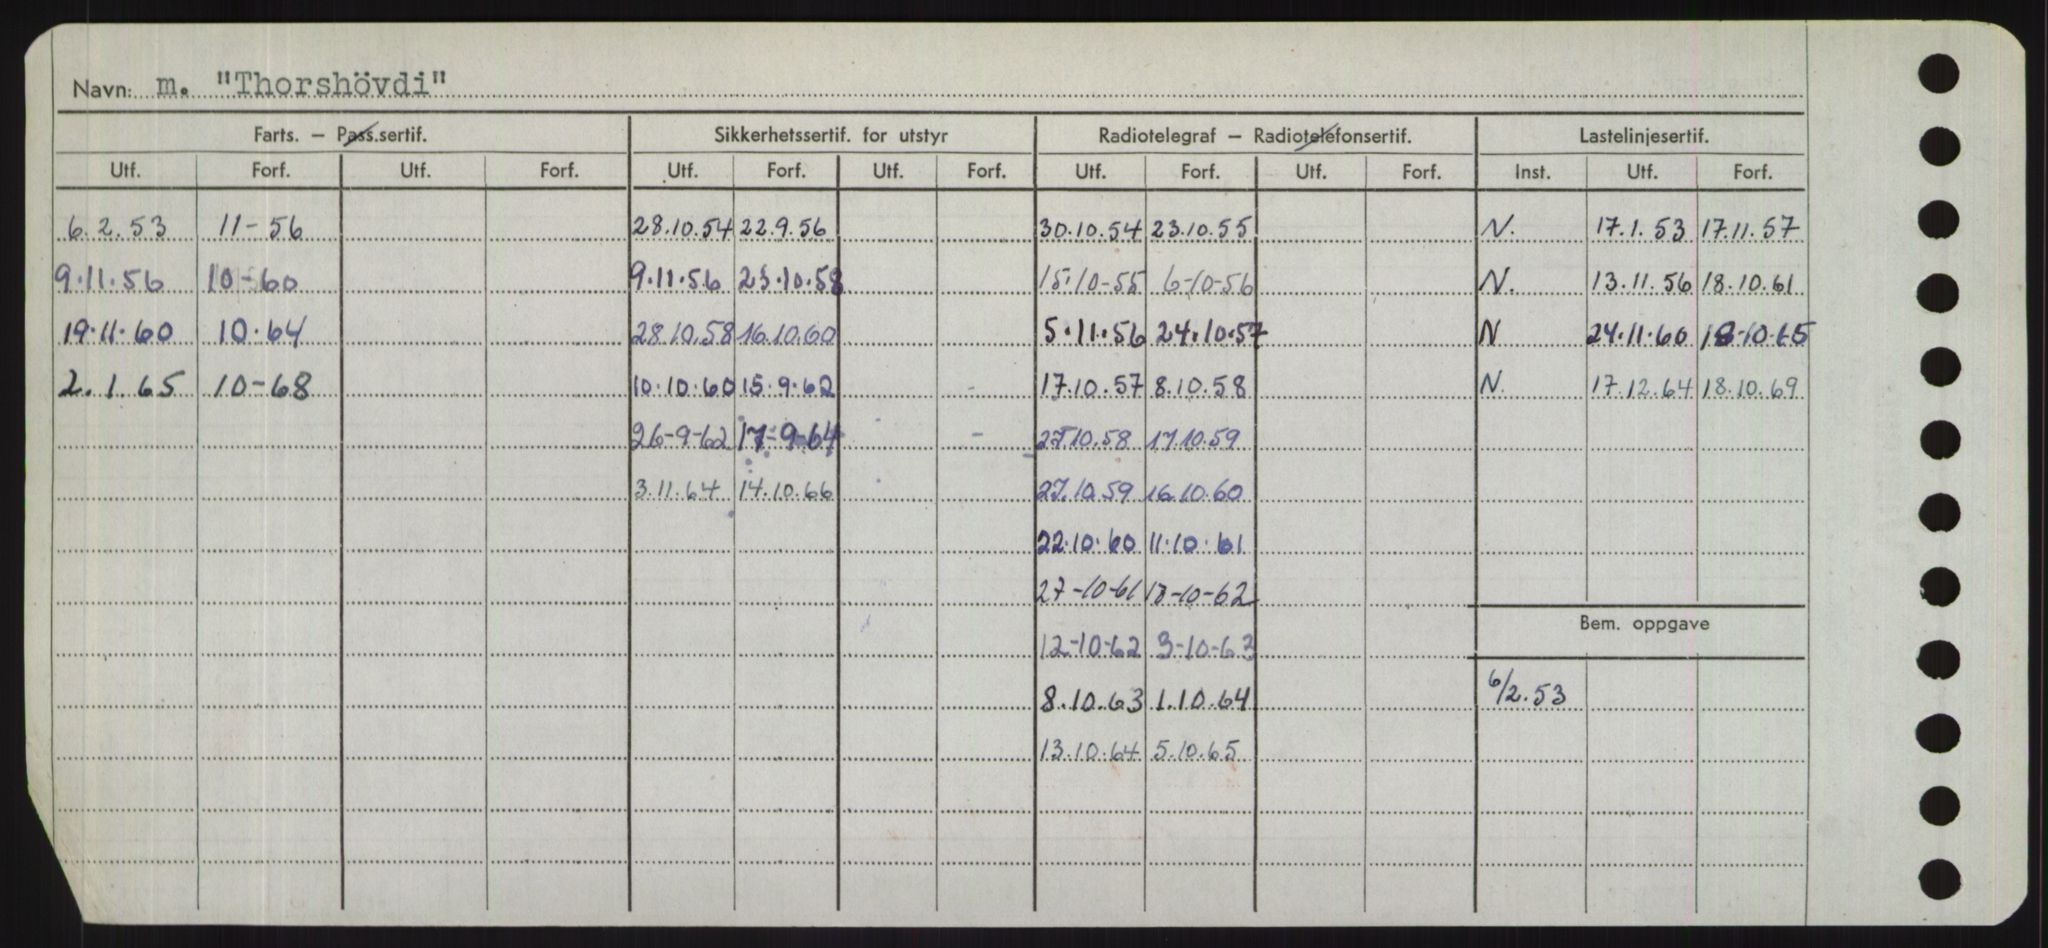 Navn: m. "Thorshövdi"
Farts. – Pass.sertif. Sikkerhetssertif. for utstyr Radiotelegraf – Radiotelefonsertif. Lastelinjesertif.
Utf. Forf. Utf. Forf. Utf. Forf. Utf. Forf. Utf. Forf. Utf. Forf. Inst. Utf. Forf.
6.2.53 11-56 28.10.54 22.9.56 30.10.54 23.10.55 N. 17.1.53 17.11.57
9.11.56 10-60 9.11.56 23.10.58 15.10-55 6-10-56 N. 13.11.56 18.10.61
19.11.60 10.64 28.10.58 16.10.60 5.11.56 24.10.57 N 24.11.60 18-10-65
2.1.65 10-68 10.10.60 15.9.62 17.10.57 8.10.58 N. 17.12.64 18.10.69
26-9-62 17-9-64 27.10.58 17.10.59
3.11.64 14.10.66 27.10.59 16.10.60
22.10.60 11.10.61
27-10-61 13-10-62
Bem. oppgave
12-10-62 3-10-63
8.10.63 1.10.64 6/2.53
13.10.64 5.10.65